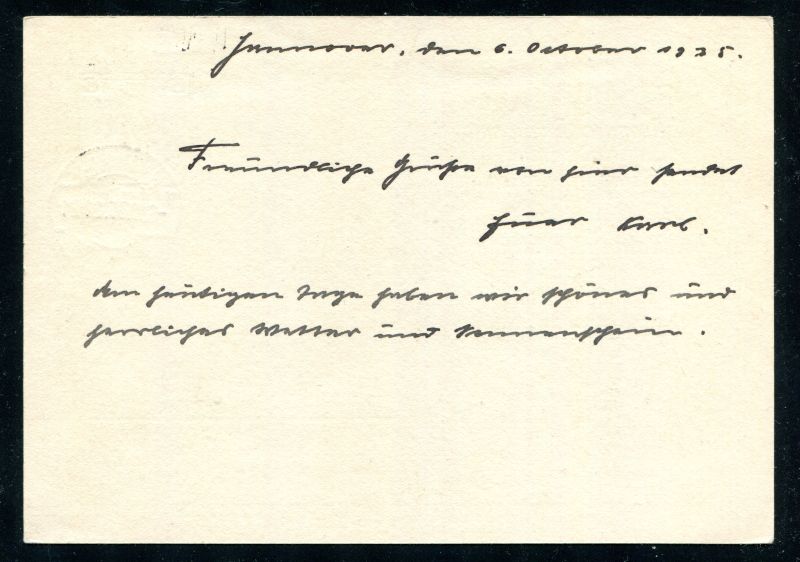 Hannover, den 6. October 1935.
Freundliche Grüße von hier sendet
Euer Karl.
Am heutigen Tage haben wir schönes und
herrliches Wetter und Sonnenschein.